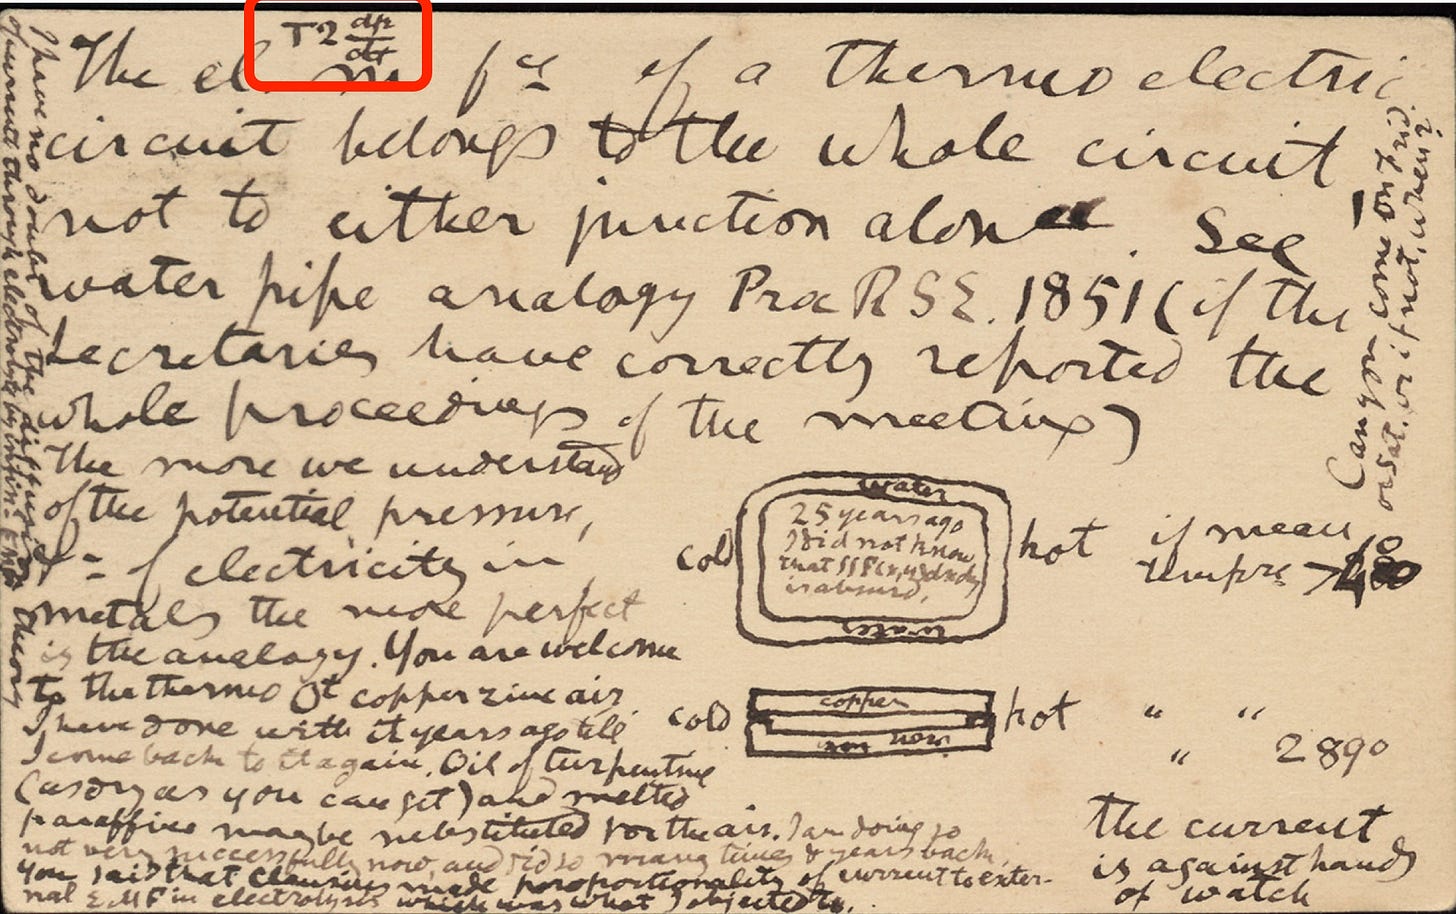 T2 dp/dt
The el m fce of a thermo electric
circuit belongs to the whole circuit
not to either junction alone. See
water pipe analogy Proc R S E. 1851 (if the
secretaries have correctly reported the
whole proceedings of the meeting)
The more we understand
of the potential pressure,
of electricity in
metals the more perfect
is the analogy. You are welcome
to the thermo copper zinc air
I have done with it years ago till
I come back to it again. Oil of turpentine
(as dry as you can get) and melted
paraffine may be substituted for the air. I am doing so
not very successfully now, and did so many times & years back.
You said that Clausius made proportionality of current to exter-
nal E.M.F in electrolysis which was what I objected to.
water
25 years ago
I did not know
that is absurd,
cold
hot
if mean
tempre >
copper
iron
cold
hot
" "
" 289°
The current
is against hands
of watch
Can you come on Frid.
or Sat. or if not, when?
I have no doubt of the
of currents through electrolyte by infin. EMF theory